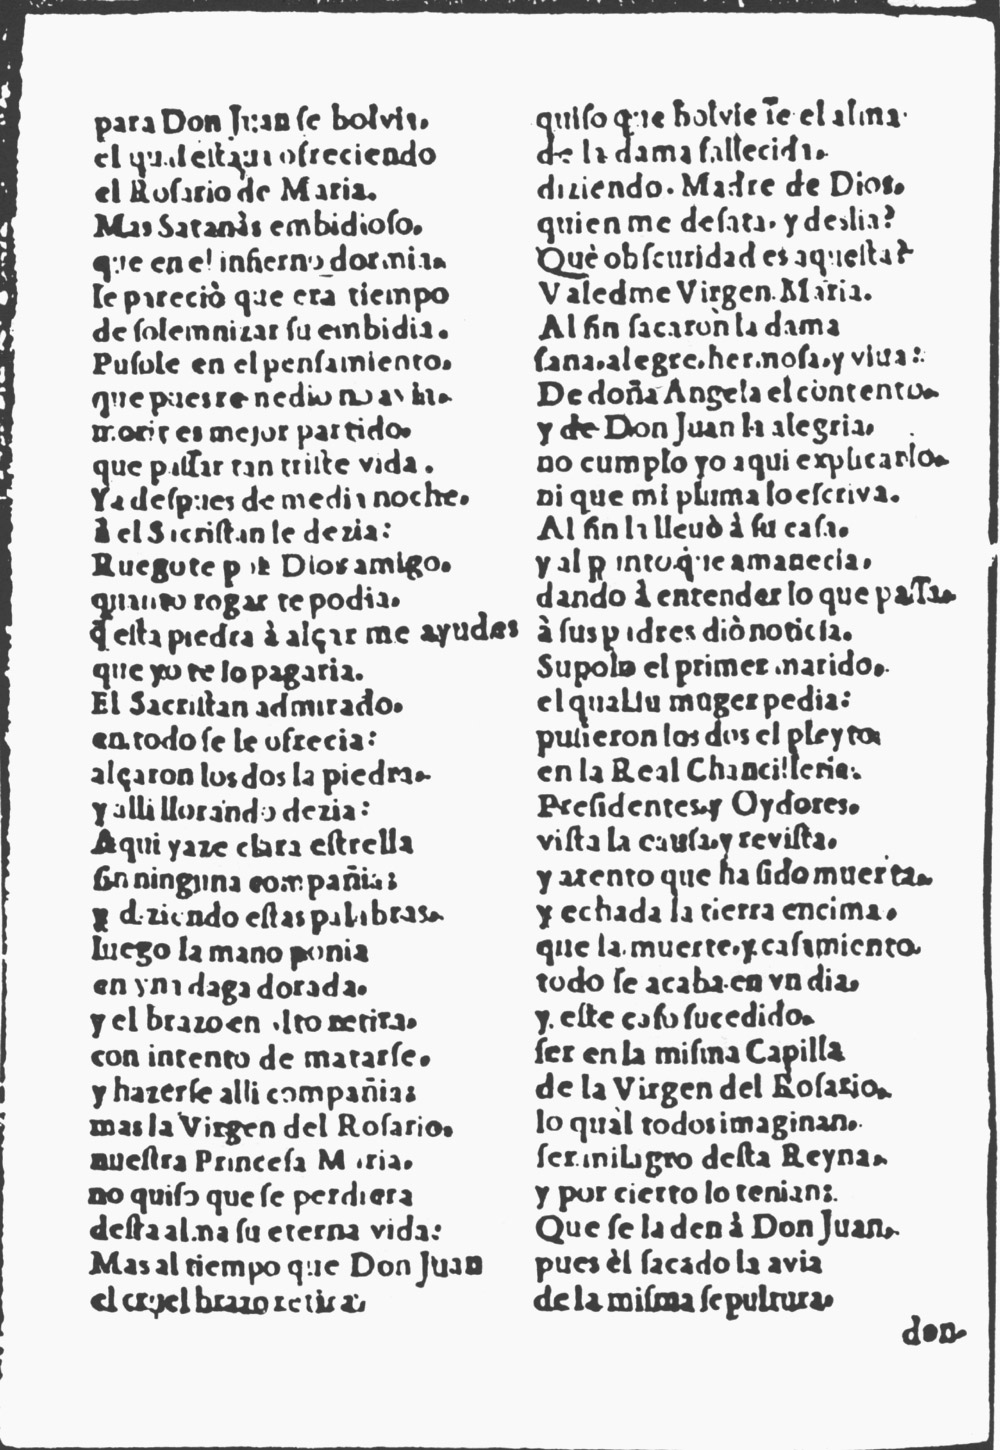 para Don Juan ſe bolvia.
el qual eſtava ofreciendo
el Roſario de Maria.
Mas Satanàs embidioſo.
que en el infierno dormia.
le pareciò que era tiempo
de ſolemnizar ſu embidia.
Puſole en el penſamiento.
que pues remedio no avia.
morir es mejor partido.
que paſſar tan triſte vida.
Ya deſpues de media noche.
à el Sacriſtan le dezia:
Ruegote por Dios amigo.
quanto rogar te podia.
q̃ eſta piedra à alçar me ayudes
que yo te lo pagaria.
El Sacriſtan admirado.
en todo ſe le ofrecia:
alçaron los dos la piedra.
y alli llorando dezia:
Aqui yaze clara eſtrella
ſin ninguna compañia:
y diziendo eſtas palabras.
luego la mano ponia
en vna daga dorada.
y el brazo en alto retira.
con intento de matarſe.
y hazerſe alli compañia:
mas la Virgen del Roſario.
nueſtra Princeſa Maria.
no quiſo que ſe perdiera
deſta alma ſu eterna vida:
Mas al tiempo que Don Juan
el cruel brazo retira,
quiſo que bolvieſſe el alma
de la dama fallecida.
diziendo. Madre de Dios.
quien me deſata, y deslia?
Què obſcuridad es aqueſta?
Valedme Virgen Maria.
Al fin ſacaron la dama
ſana, alegre, hermoſa, y viua:
De doña Angela el contento.
y de Don Juan la alegria,
no cumplo yo aqui explicarlo.
ni que mi pluma lo eſcriva.
Al fin la lleuò à ſu caſa.
y al punto q̃ue amanecia,
dando à entender lo que paſſa.
à ſus padres diò noticia.
Supolo el primer marido.
el qual ſu muger pedia:
puſieron los dos el pleyto
en la Real Chancilleria.
Preſidentes, y Oydores.
viſta la cauſa, y reviſta.
y atento que ha ſido muerta.
y echada la tierra encima.
que la muerte, y caſamiento
todo ſe acaba en vn dia,
y eſte caſo ſucedido.
ſer en la miſma Capilla
de la Virgen del Roſario.
lo qual todos imaginan.
ſer milagro deſta Reyna.
y por cierto lo tenian:
Que ſe la den à Don Juan.
pues èl ſacado la avia
de la miſma ſepultura.
don-